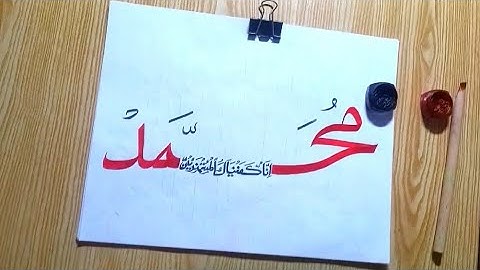 مُحَمَّدْ
إِنَّا كَفَيْنَاكَ الْمُسْتَهْزِئِينَ